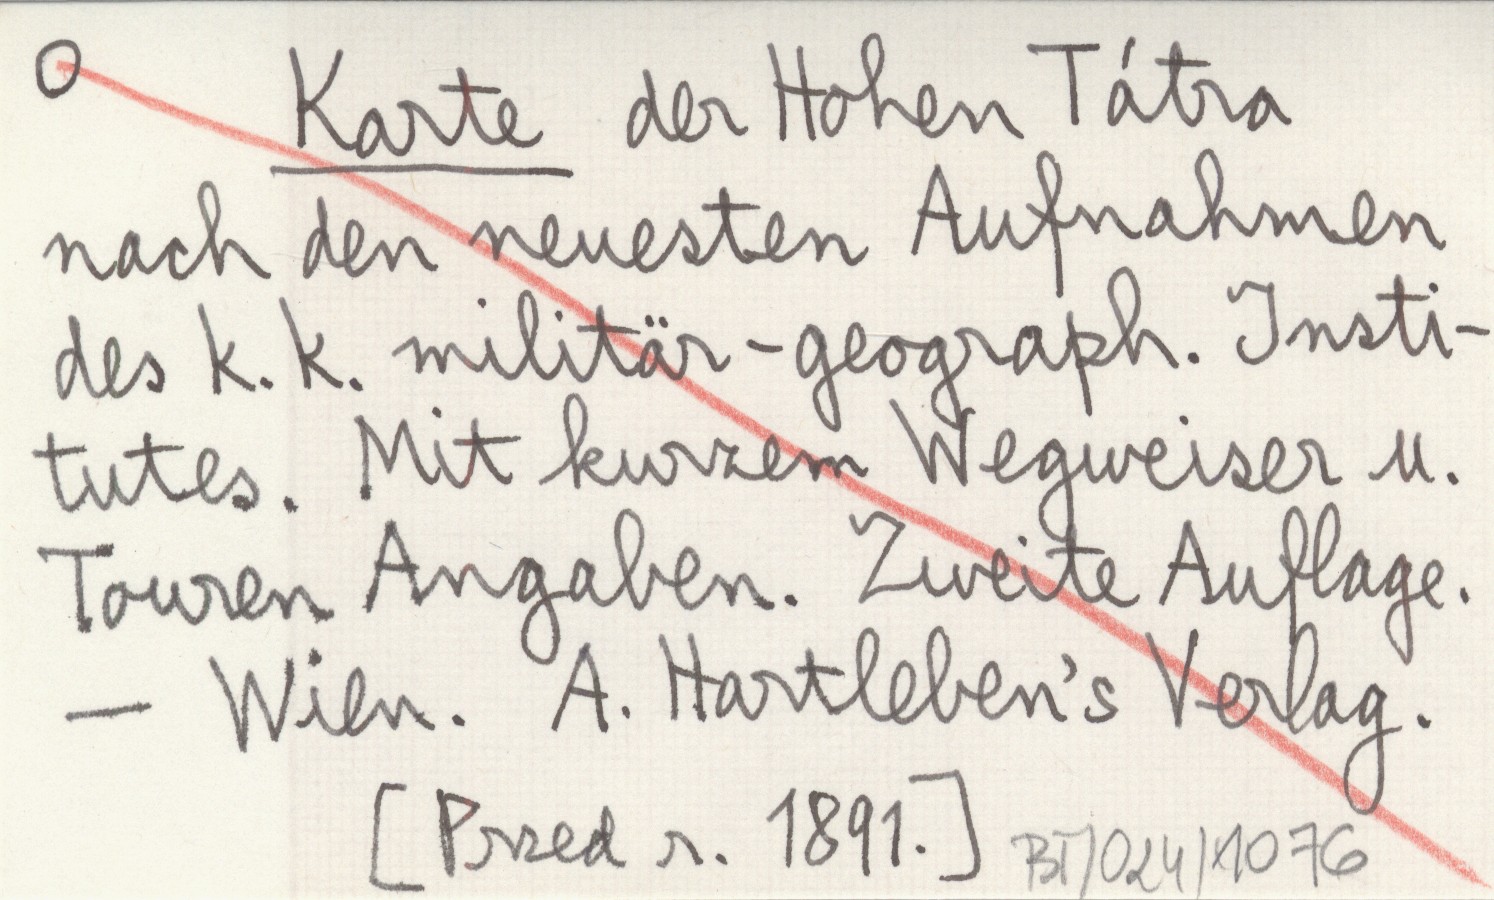 O
Karte der Hohen Tátra
nach den neuesten Aufnahmen
des k. k. militär-geograph. Insti-
tutes. Mit kurzem Wegweiser u.
Touren Angaben. Zweite Auflage.
— Wien. A. Hartleben's Verlag.
[Przed r. 1891.]
BT/024/1076